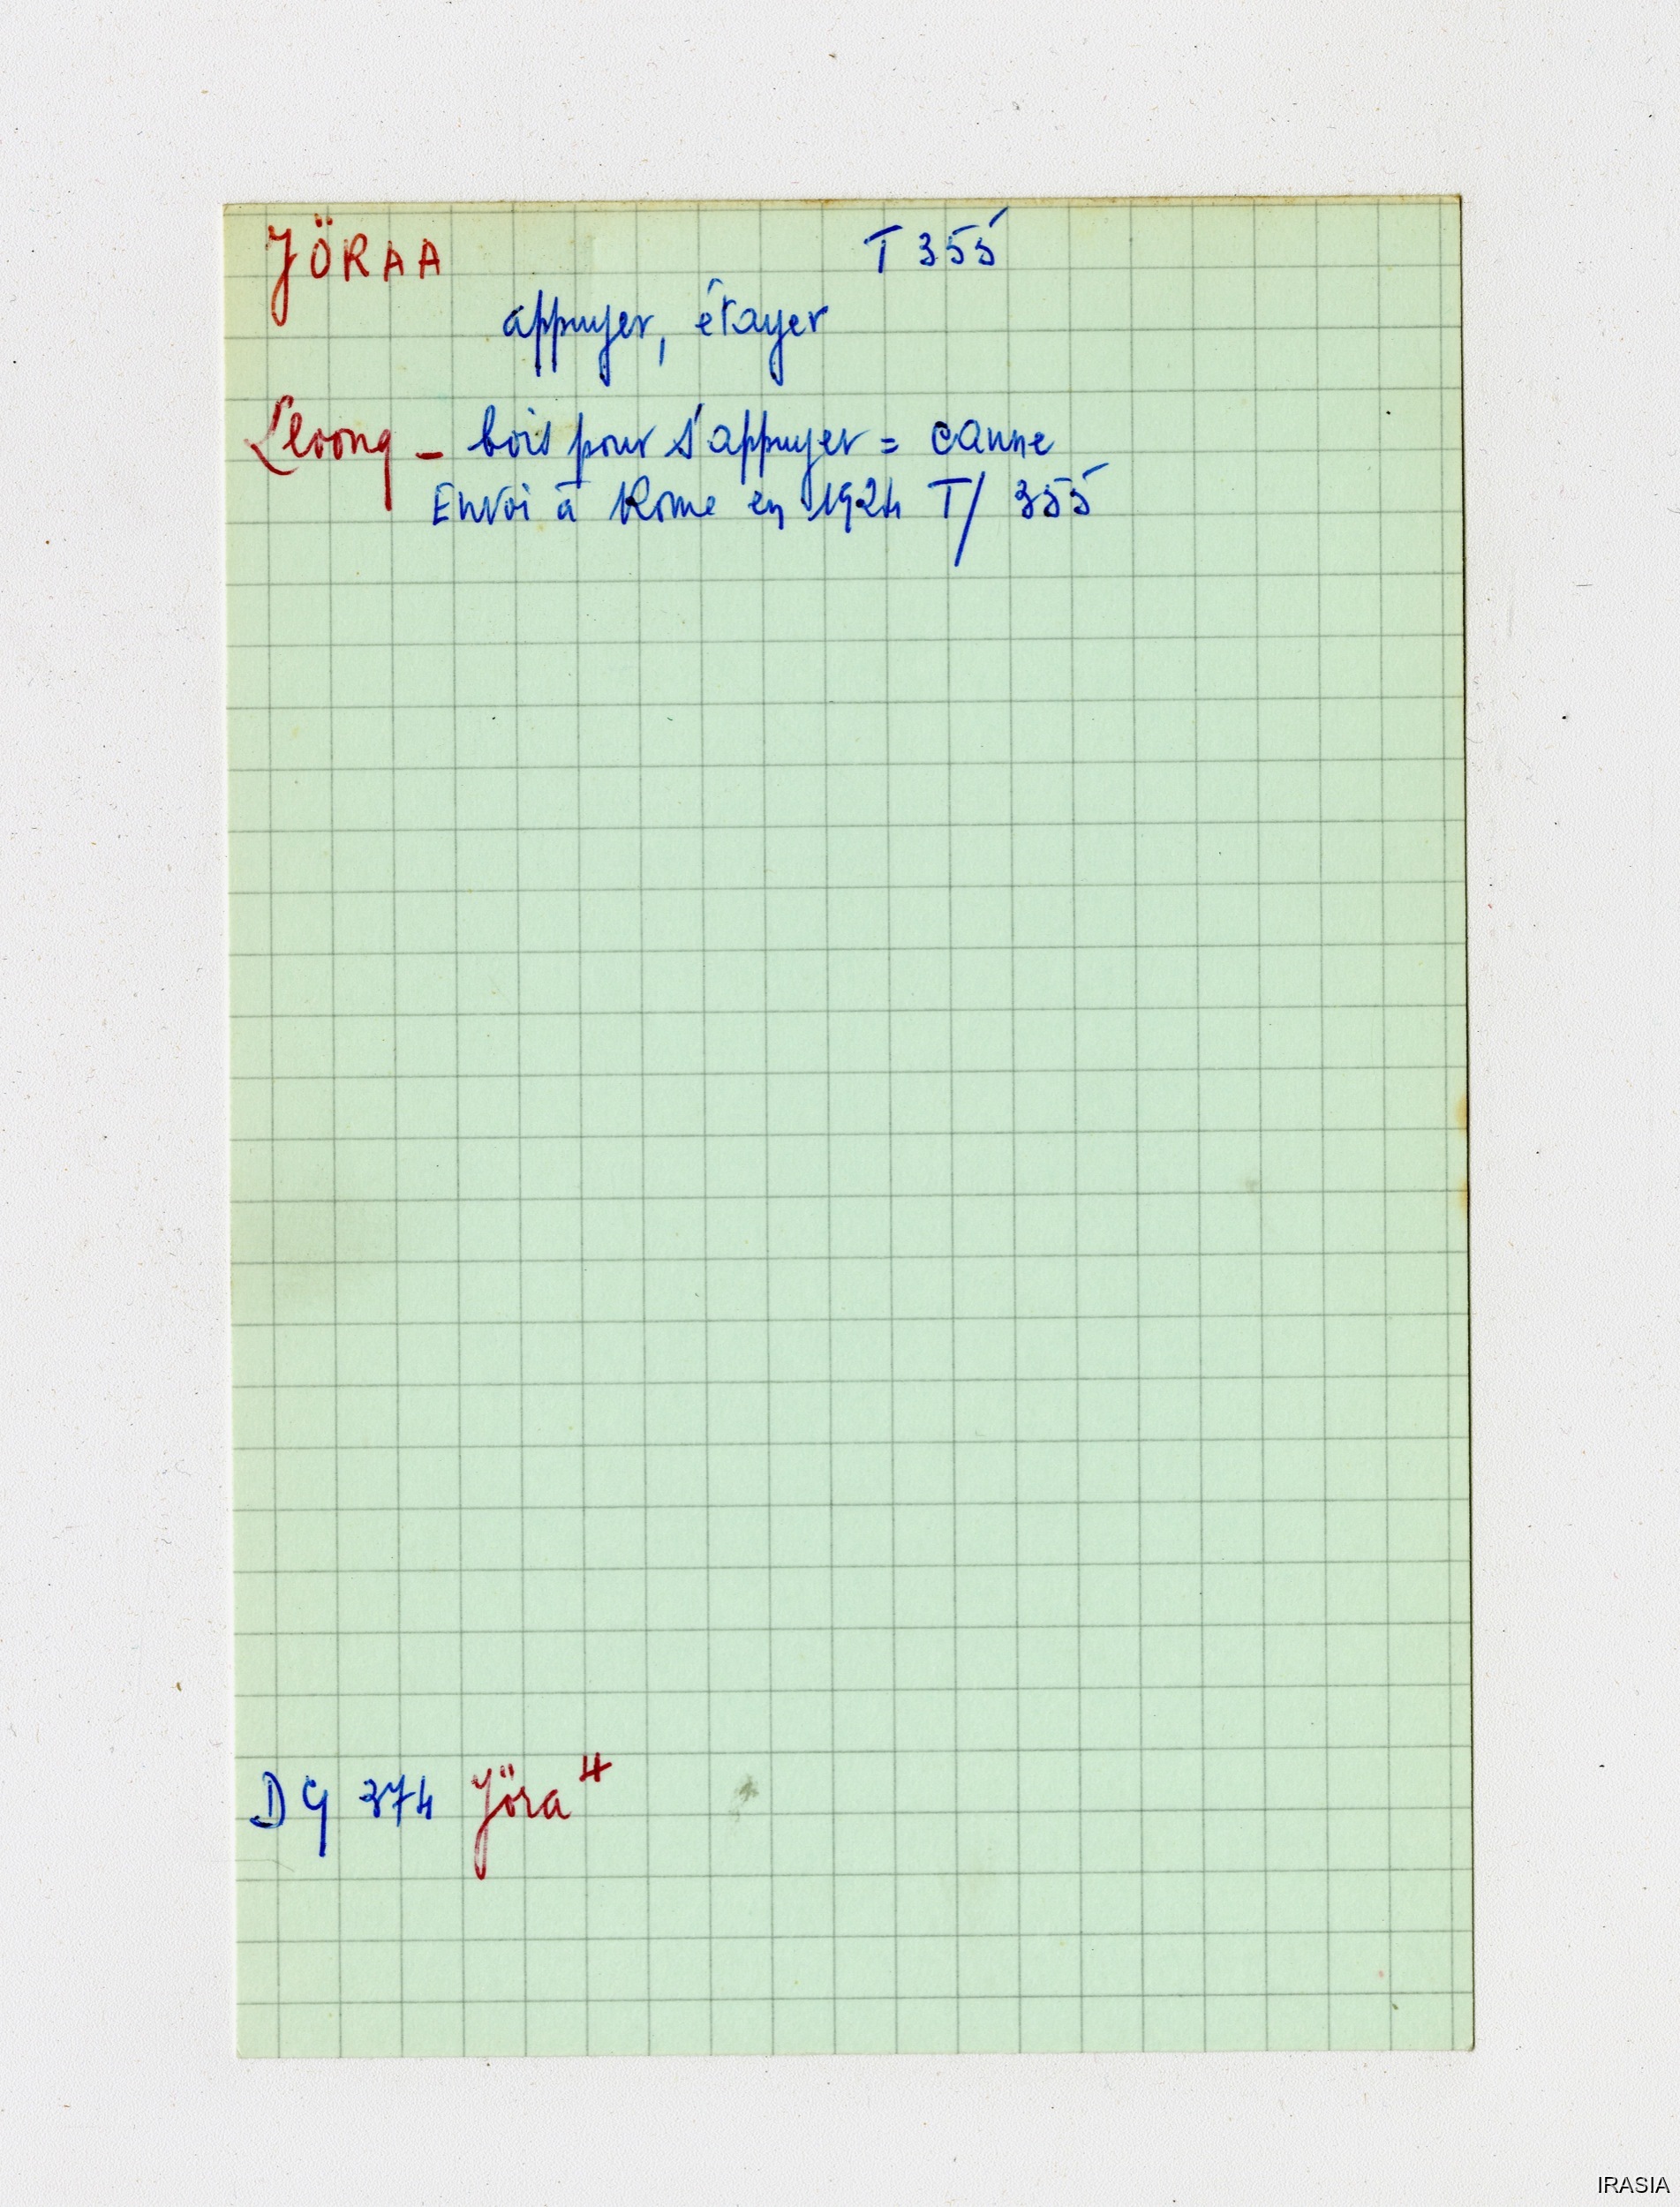 JÖRAA T 355
appuyer, étayer
Lloong _ bois pour s'appuyer = canne
Envoi à Rome en 1924 T/ 355
DG 374 Jöra 4
IRASIA